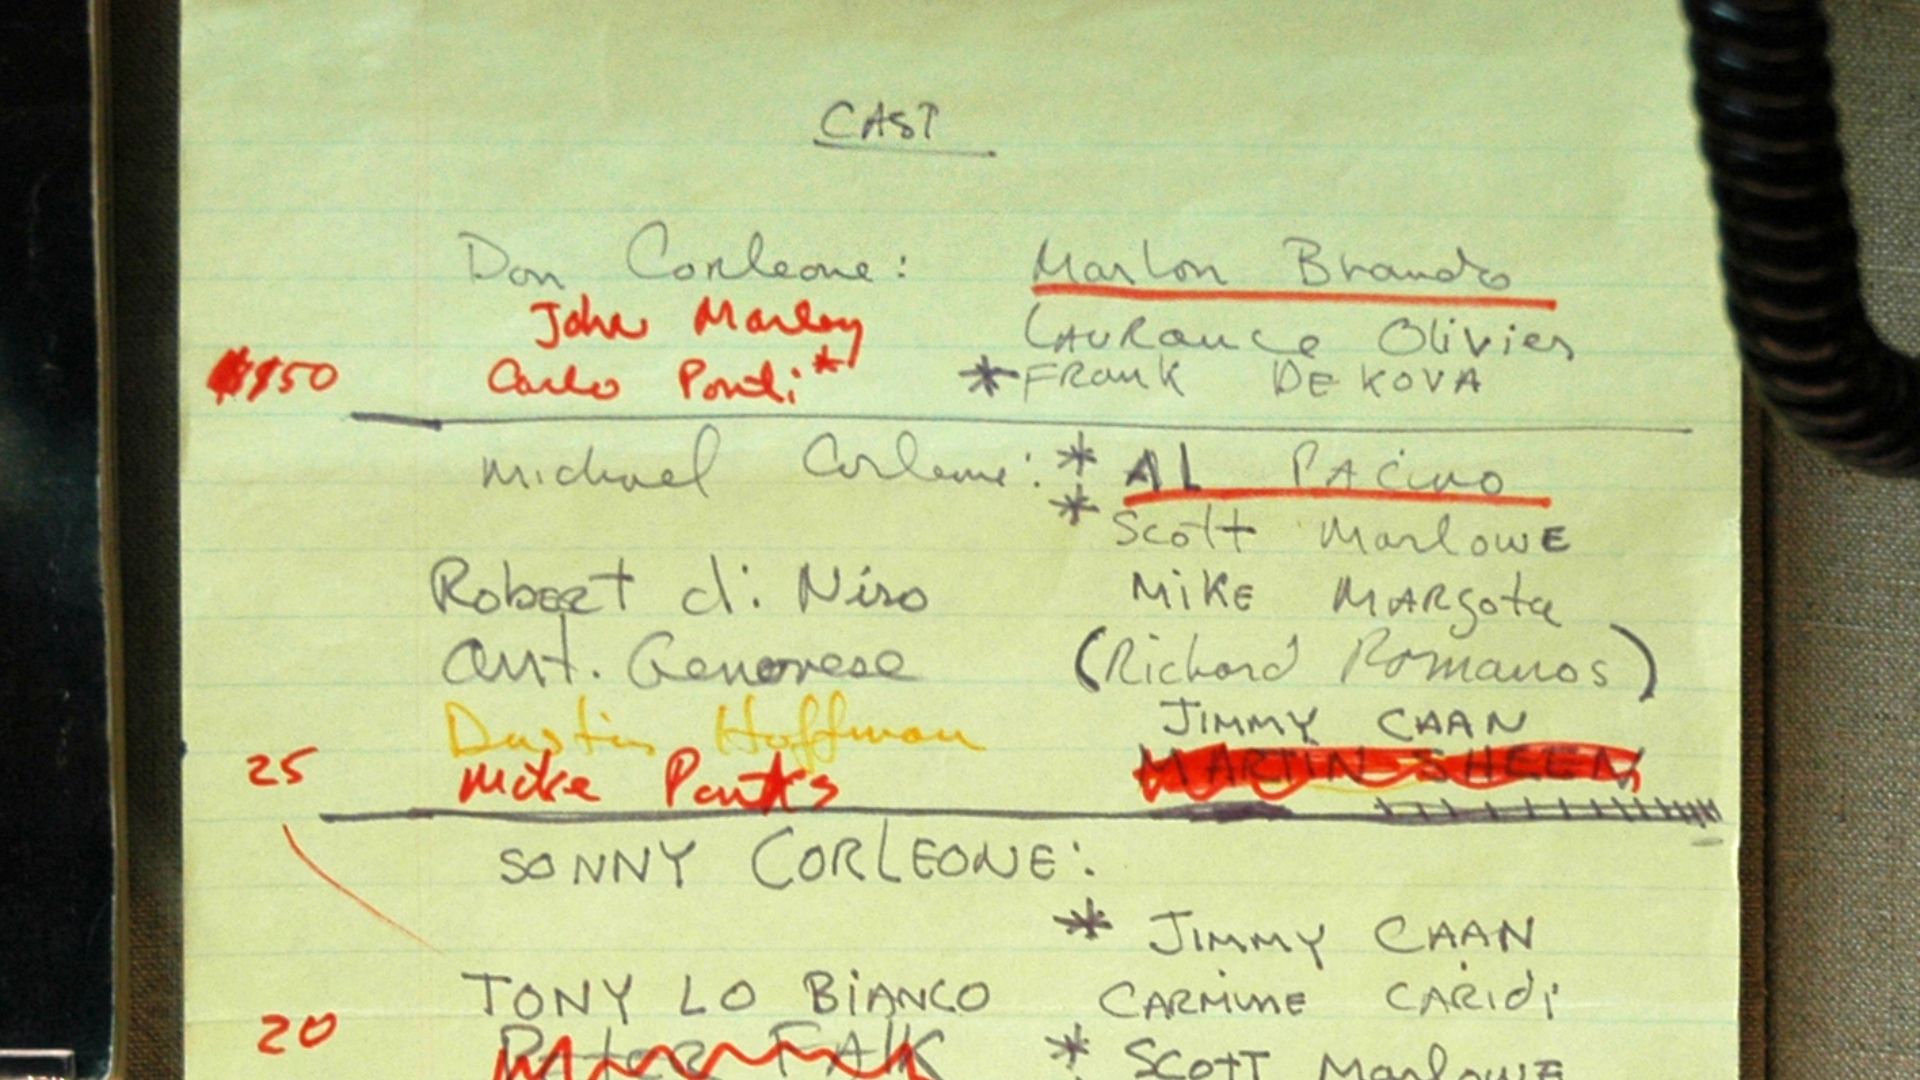 CAST
Don Corleone: Marlon Brando
John Marley Laurance Olivier
$150 Carlo Ponti* *Frank DE KOVA
Michael Corleone: * AL PACino
* Scott Marlowe
Robert di Niro Mike MARgota
Ant. Genovese (Richard Romanos)
Dustin Hoffman JIMMY CAAN
25 Mike Parks MARTIN SHEEN
SONNY CORLEONE:
* JIMMY CAAN
TONY LO BiANCO CARMINE CARIdi
20 PeteR FAlK * Scott Marlowe